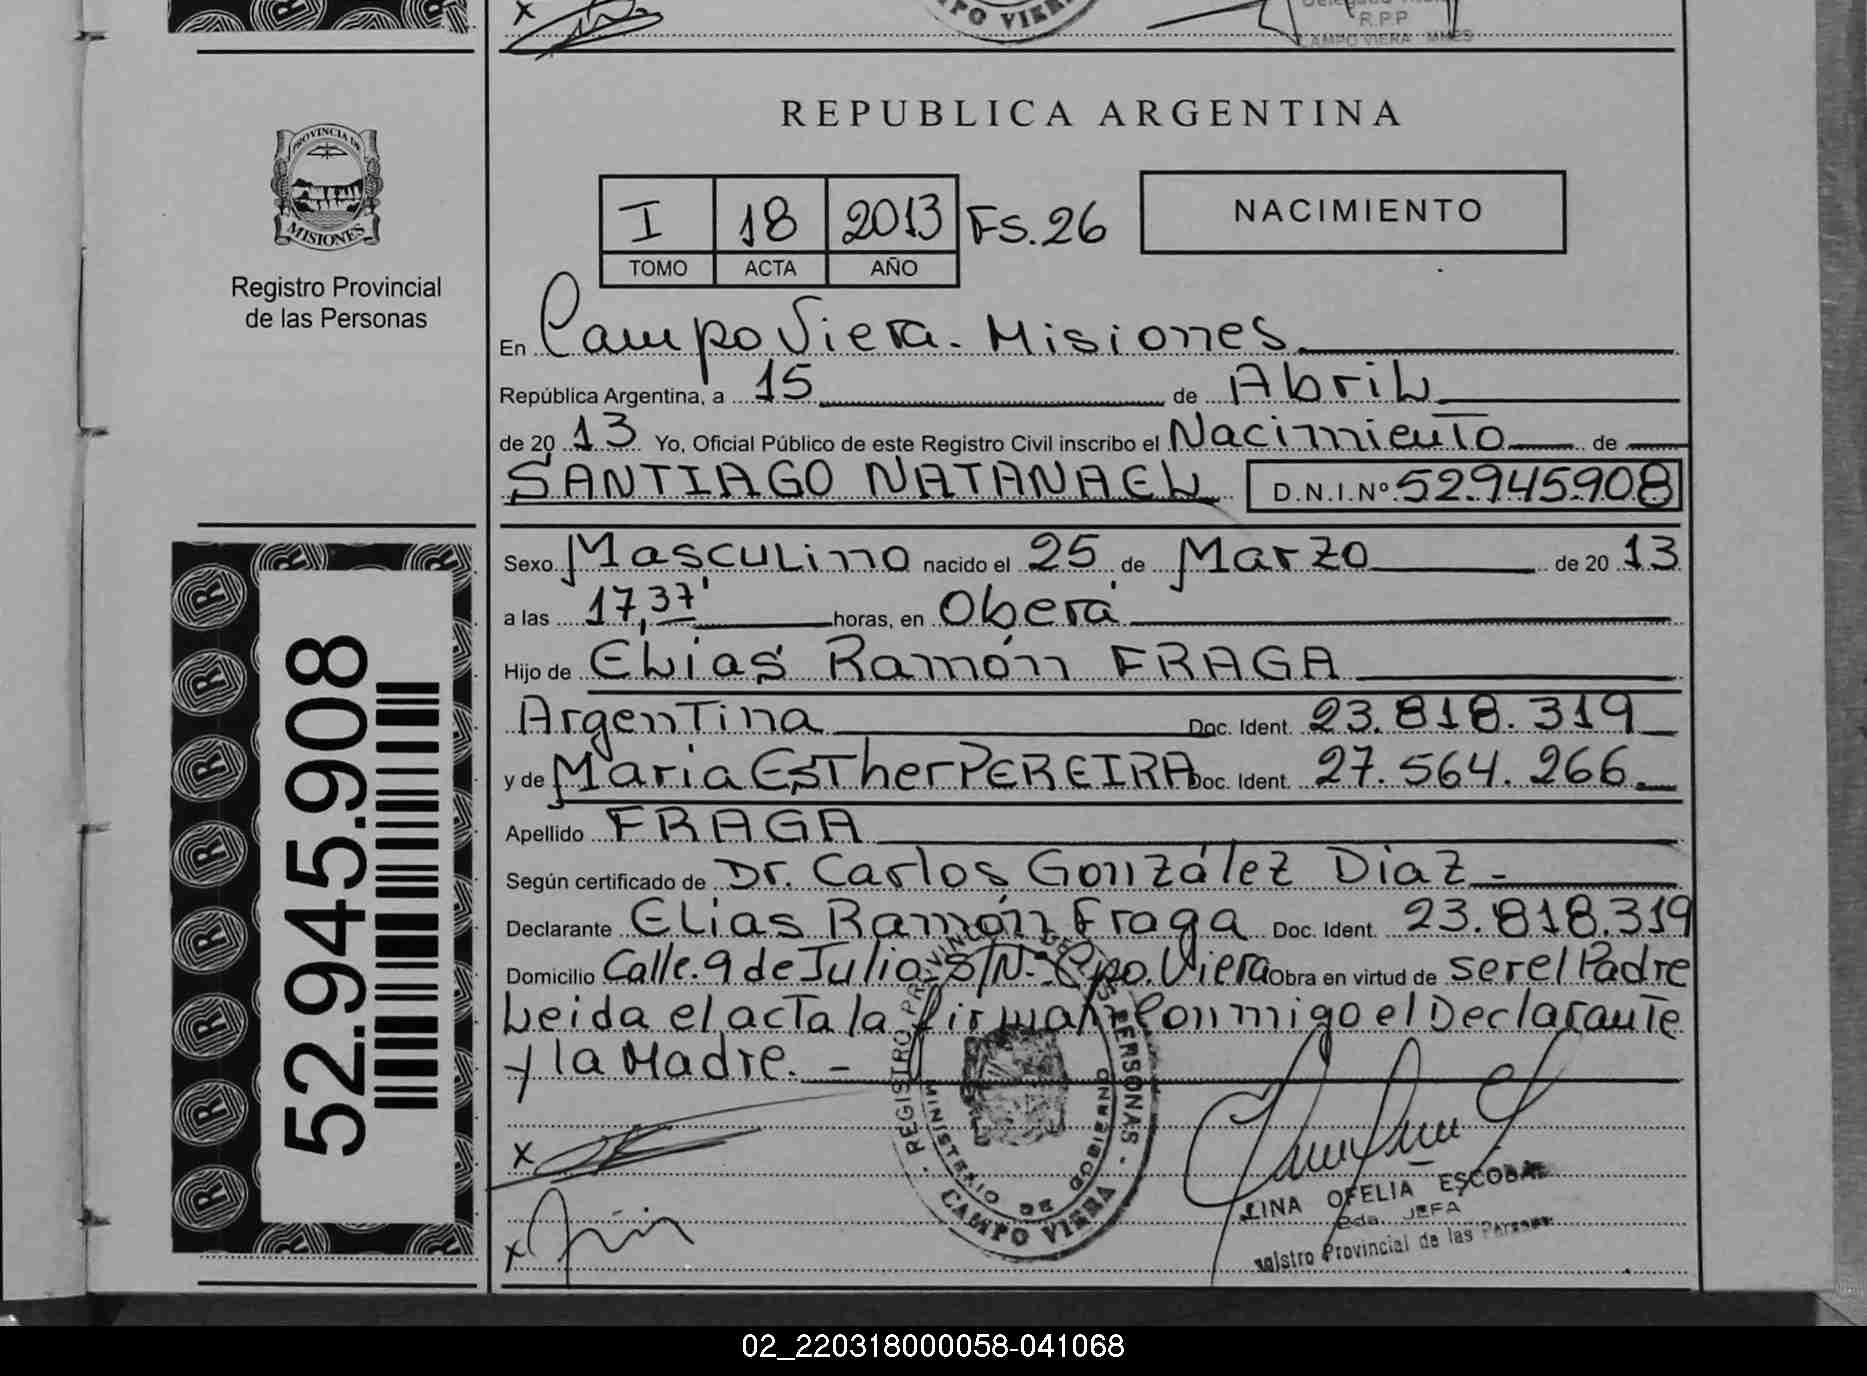 CAMPO VIERA
R.P.P
CAMPO VIERA MNES
PROVINCIA DE
MISIONES
Registro Provincial
de las Personas
REPUBLICA ARGENTINA
I 18 2013 FS.26
TOMO ACTA AÑO
NACIMIENTO
En Campo Viera. Misiones
República Argentina, a 15 de Abril
de 20 13 Yo, Oficial Público de este Registro Civil inscribo el Nacimiento de
SANTIAGO NATANAEL D.N.I.Nº 52.945.908
Sexo Masculino nacido el 25 de Marzo de 20 13
a las 17,37' horas, en Oberá
Hijo de Elias Ramón FRAGA
Argentina Doc. Ident. 23.818.319
y de Maria Esther PEREIRA Doc. Ident. 27.564.266.
Apellido FRAGA
Según certificado de Dr. Carlos González Diaz -
Declarante Elias Ramón Fraga Doc. Ident. 23.818.319
Domicilio Calle. 9 de Julio. S/Nº Cpo. Viera Obra en virtud de ser el Padre
Leida el acta la firman Conmigo el Declarante
y la Madre. -
x
x
REGISTRO PROVINCIAL DE LAS PERSONAS
MINISTERIO DE GOBIERNO
CAMPO VIERA
LINA OFELIA ESCOBAR
2da. JEFA
Registro Provincial de las Personas
52.945.908
02_220318000058-041068